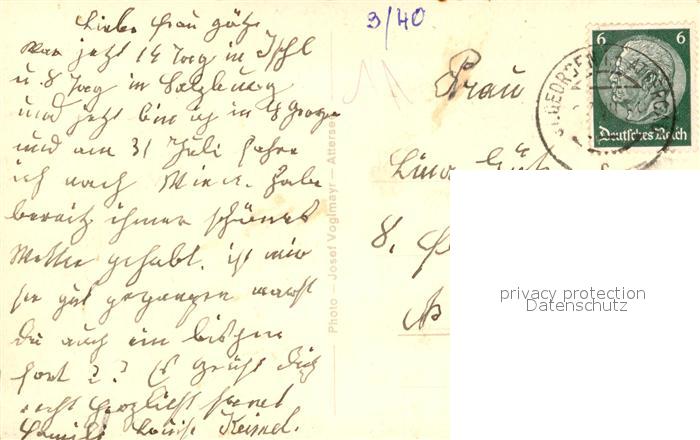 Liebe Frau Götz
War jetzt 14 Tag in Ischl
u. 8 Tag in Salzburg
und jetzt bin ich in St Georgen
und am 31 Juli fahre
ich nach Wien. Habe
bereits immer schönes
Wetter gehabt, ist mir
sehr gut gegangen warst
du auch ein bischen
fort?? Es grüßt dich
recht herzlichst
Familie Louise
3/40
Photo – Josef Voglmayr – Attersee
Frau
8.
6 6
Deutsches Reich
ST. GEORGEN
privacy protection
Datenschutz